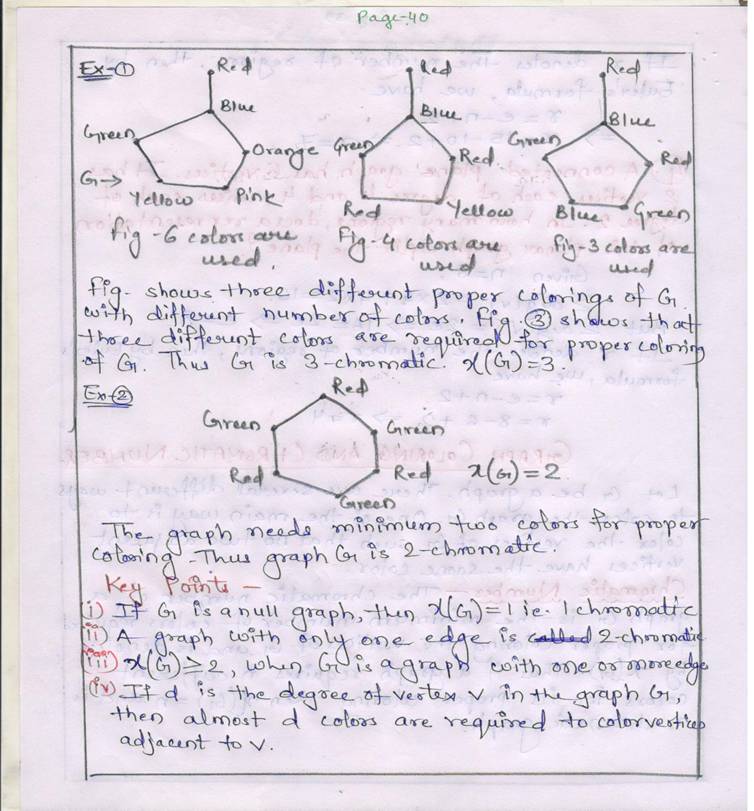 Page-40
Ex-①
Red
Blue
Green
Orange
G→
Yellow
Pink
Fig-6 colors are
used.
Red
Blue
Green
Red
Red
Yellow
Fig-4 colors are
used
Red
Blue
Green
Red
Blue
Green
Fig-3 colors are
used
Fig. shows three different proper colorings of G
with different number of colors. Fig ③ shows that
three different colors are required for proper coloring
of G. Thus G is 3-chromatic. χ(G)=3.
Ex-②
Red
Green
Green
Red
Red
Green
χ(G)=2
The graph needs minimum two colors for proper
coloring. Thus graph G is 2-chromatic.
Key Points -
(i) If G is a null graph, then χ(G)=1 ie. 1 chromatic
(ii) A graph with only one edge is called 2-chromatic
(iii) χ(G)≥2, when G is a graph with one or more edge
(iv) If d is the degree of vertex v in the graph G,
then almost d colors are required to color vertices
adjacent to v.